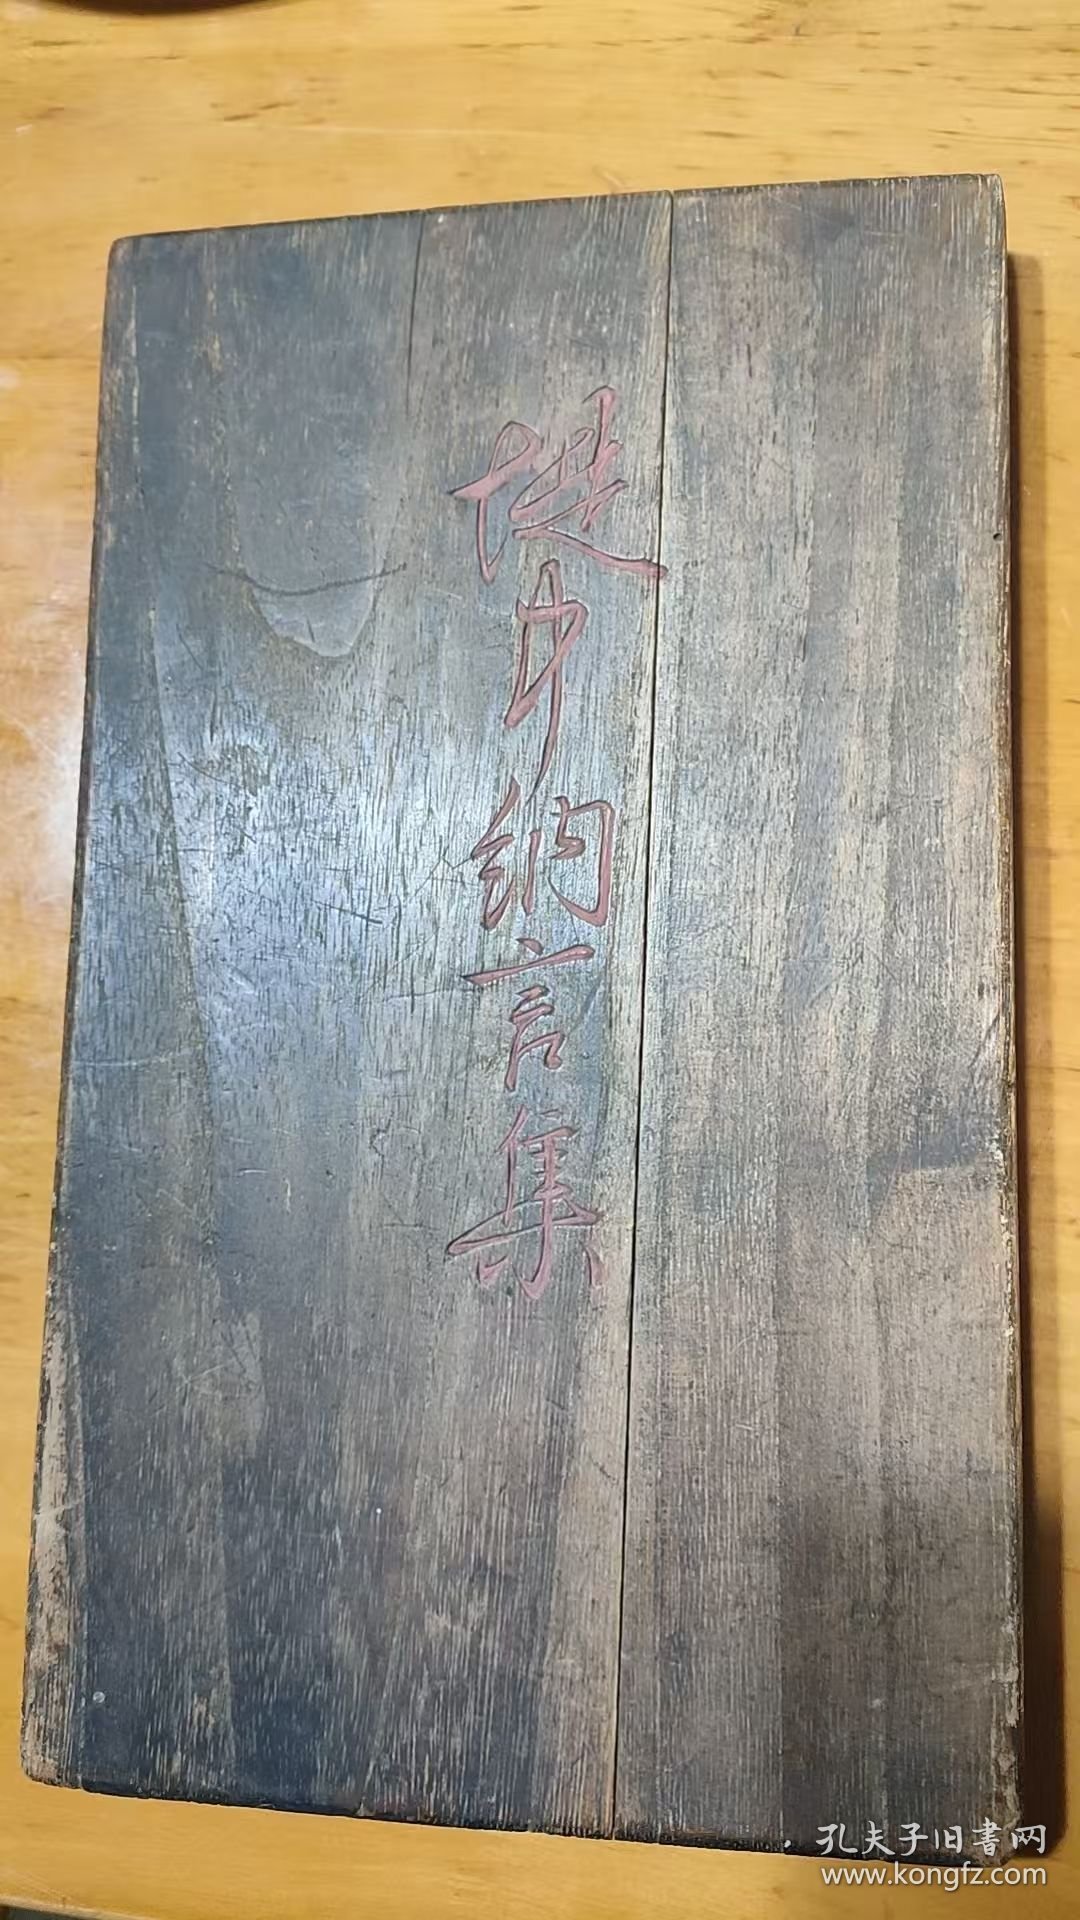 堤中納言集
孔夫子旧書网
www.kongfz.com